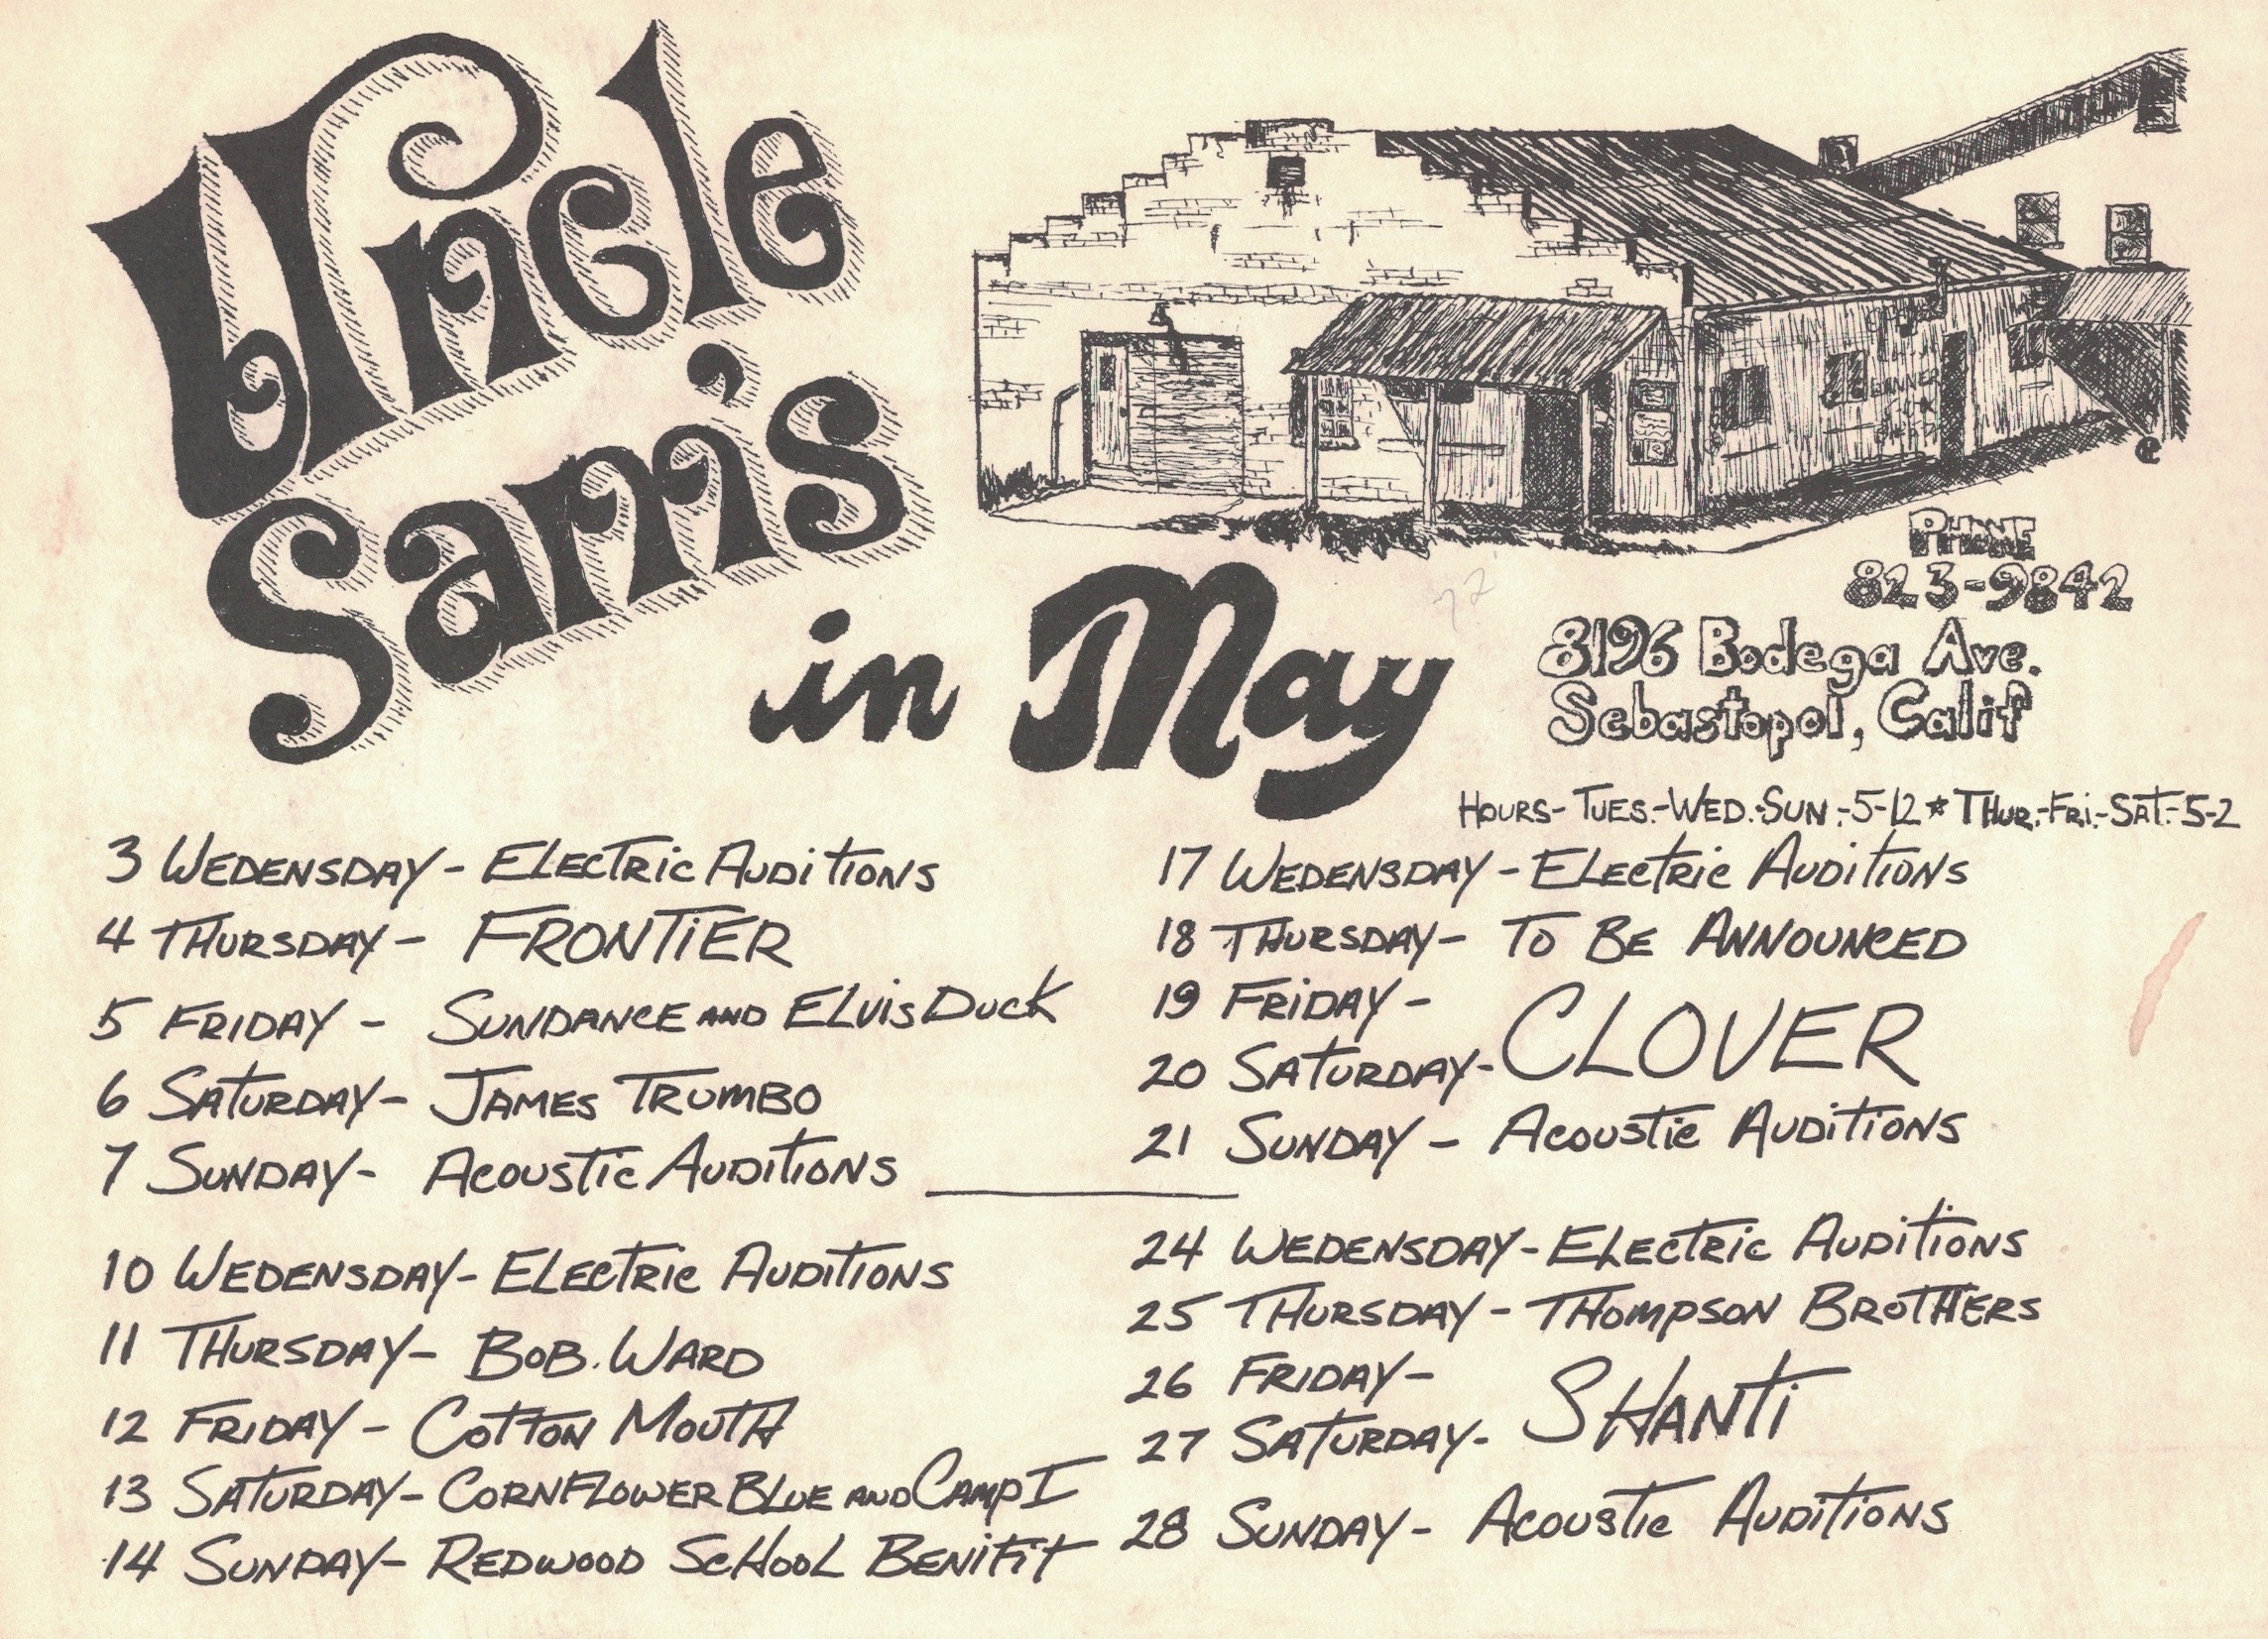 Uncle
Sam's
in May
PHONE
823-9842
8196 Bodega Ave.
Sebastopol, Calif
HOURS- TUES.-WED.-SUN.-5-12 * THUR.-FRI.-SAT.-5-2
3 WEDENSDAY - ELECTRIC AUDITIONS
4 THURSDAY - FRONTIER
5 FRIDAY - SUNDANCE AND ELVIS DUCK
6 SATURDAY - JAMES TRUMBO
7 SUNDAY - ACOUSTIC AUDITIONS
10 WEDENSDAY - ELECTRIC AUDITIONS
11 THURSDAY - BOB. WARD
12 FRIDAY - COTTON MOUTH
13 SATURDAY - CORNFLOWER BLUE AND CAMP I
14 SUNDAY - REDWOOD SCHOOL BENIFIT
17 WEDENSDAY - ELECTRIC AUDITIONS
18 THURSDAY - TO BE ANNOUNCED
19 FRIDAY -
20 SATURDAY - CLOVER
21 SUNDAY - ACOUSTIC AUDITIONS
24 WEDENSDAY - ELECTRIC AUDITIONS
25 THURSDAY - THOMPSON BROTHERS
26 FRIDAY -
27 SATURDAY - SHANTI
28 SUNDAY - ACOUSTIC AUDITIONS
72